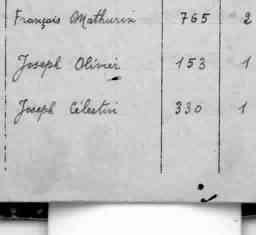 François Mathurin 765 2
Joseph Olivier 153 1
Joseph Célestin 330 1